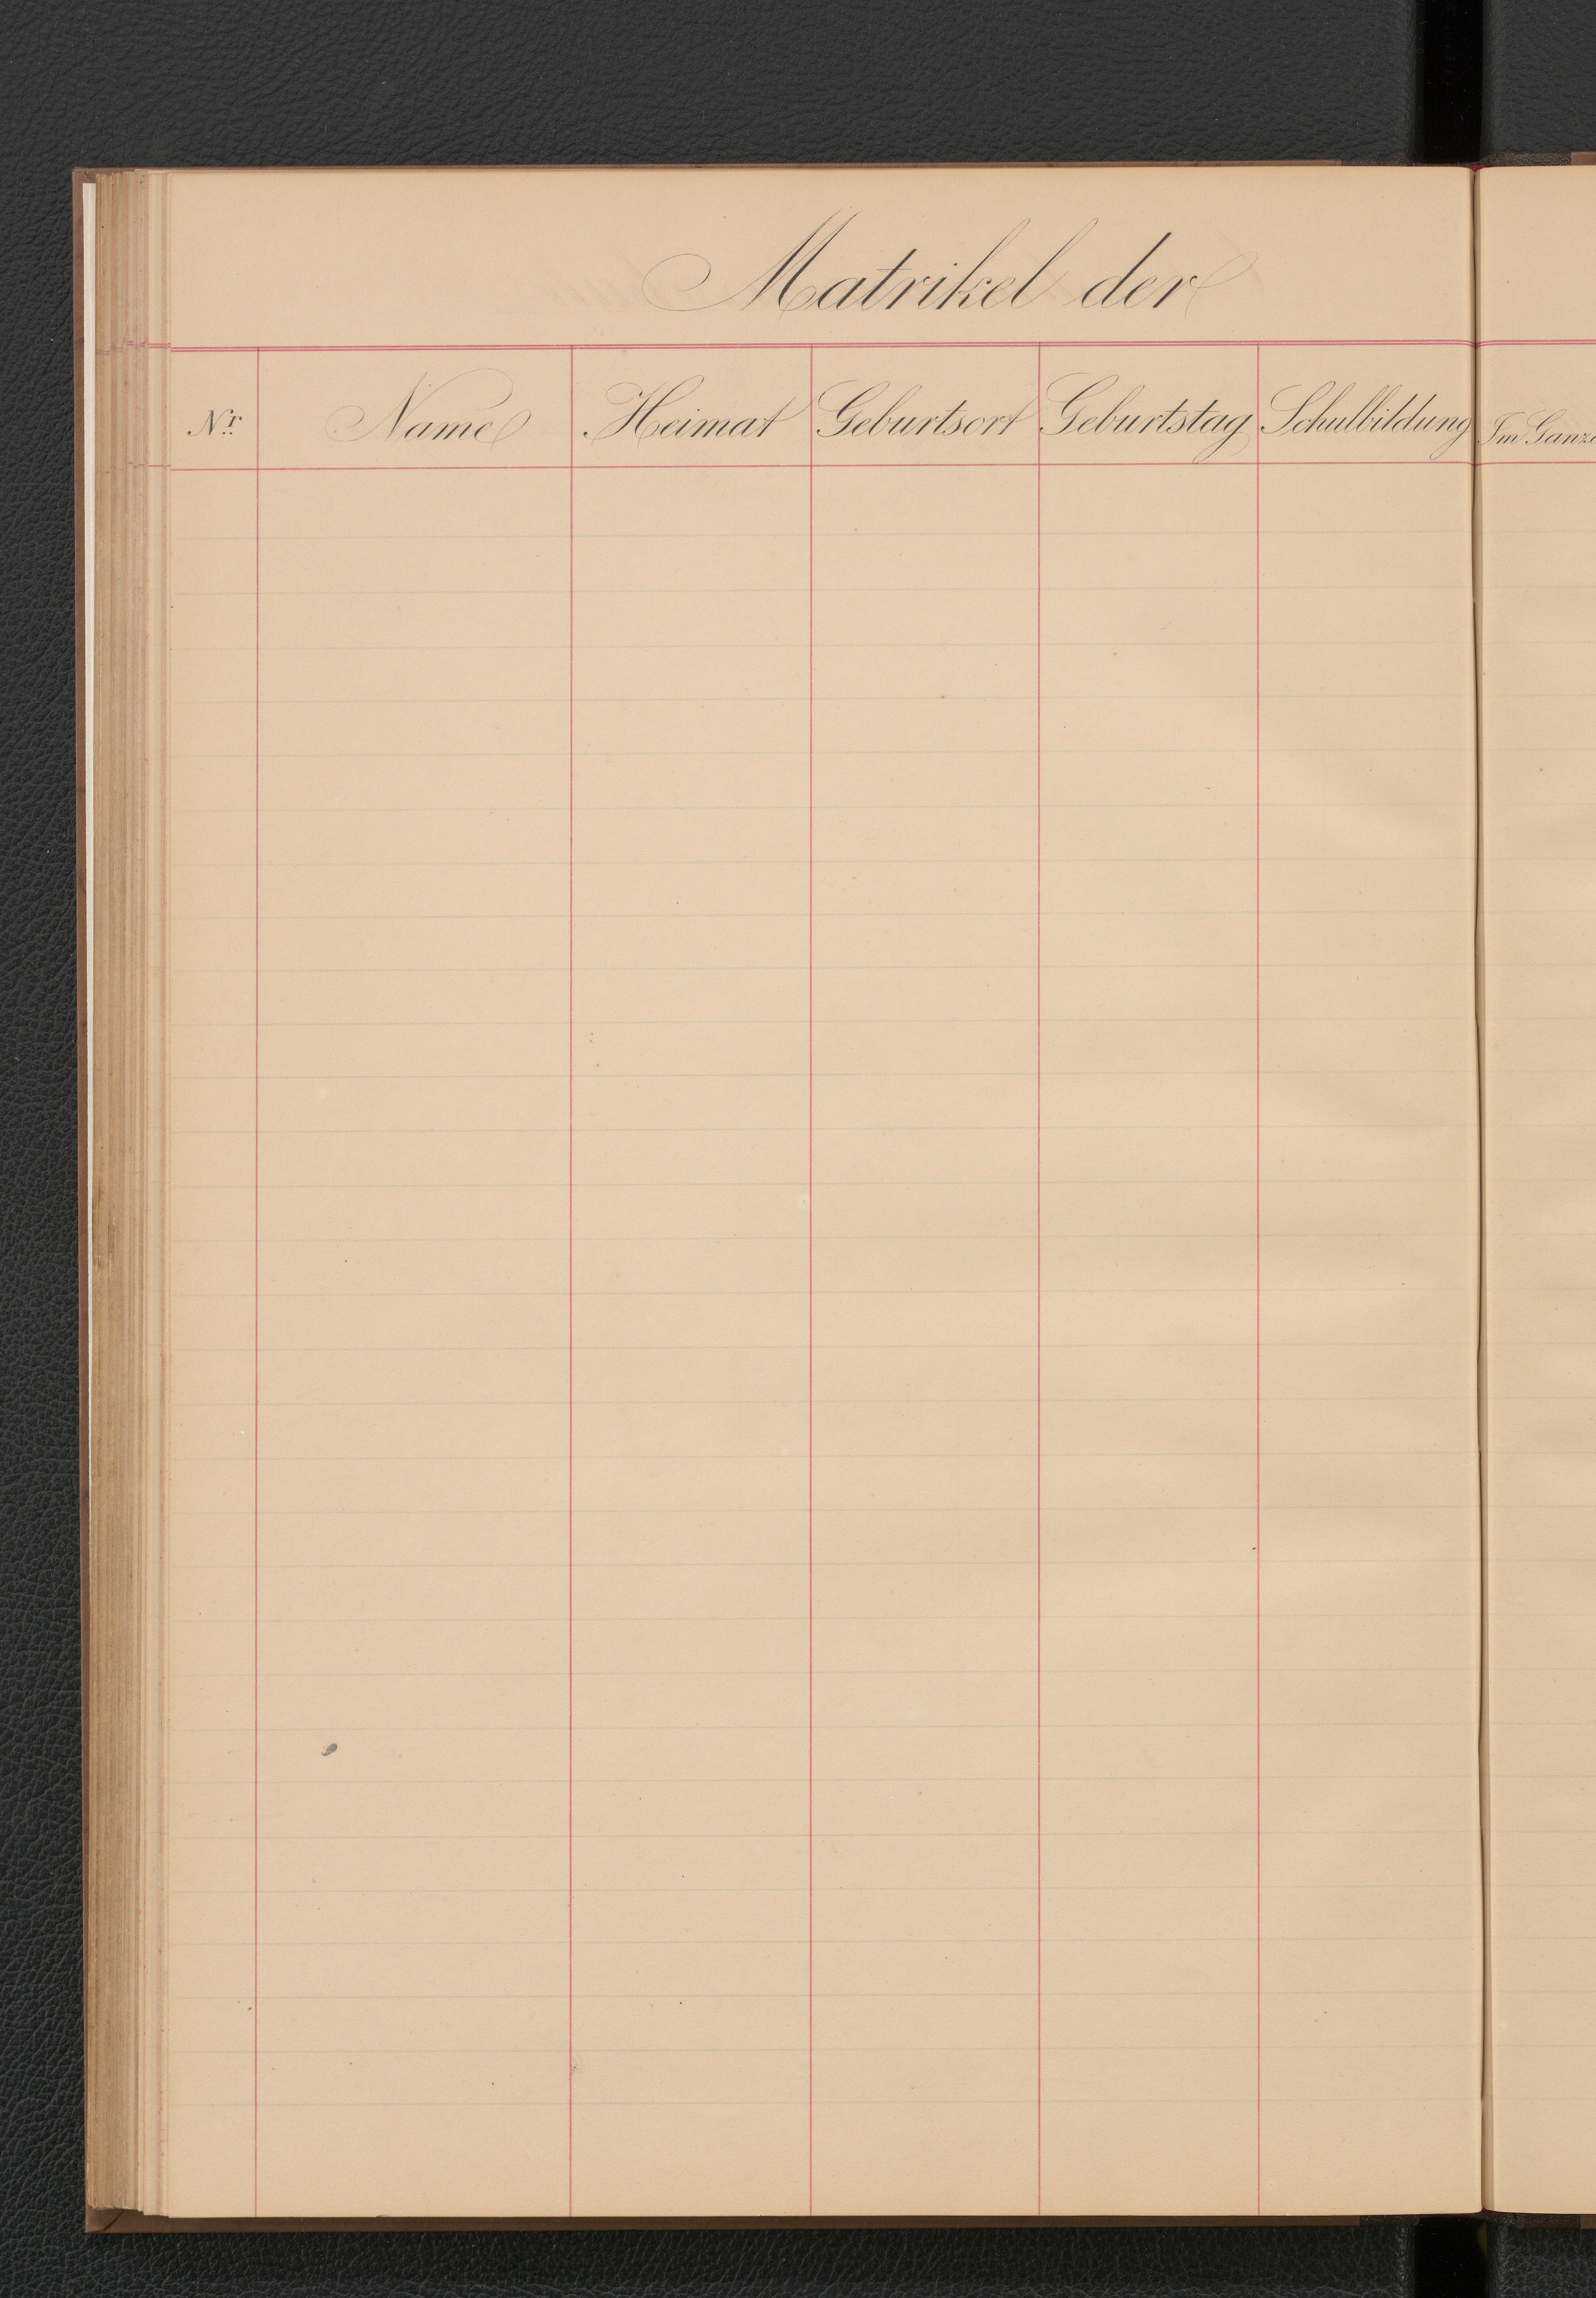 Matrikel der
Nr. Name Heimat Geburtsort Geburtstag Schulbildung Im Ganze